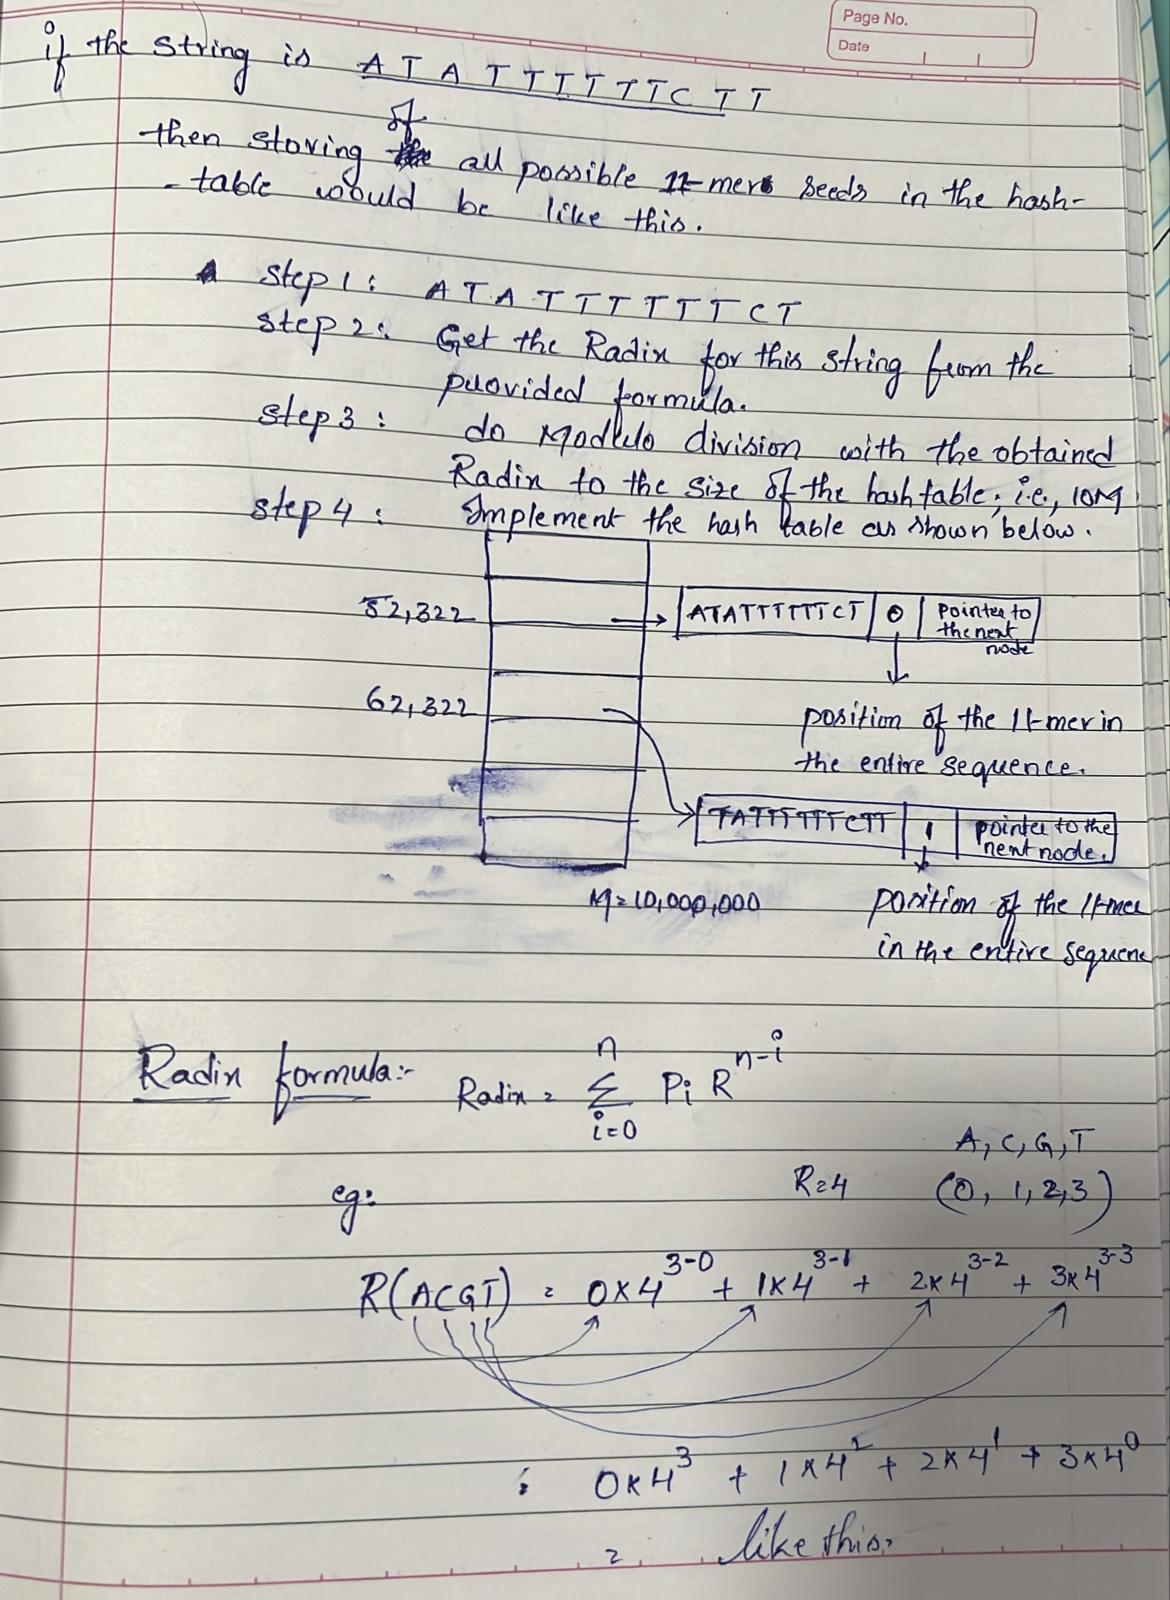 Page No.
Date
if the string is A T A T T T T T T C T T
then storing of all possible 11-mers seeds in the hash-
-table would be like this.
step 1: A T A T T T T T T C T
step 2: Get the Radix for this string from the
provided formula.
step 3: do Modulo division with the obtained
Radix to the size of the hash table, i.e., 10M
step 4: Implement the hash table as shown below.
52,322 ATATTTTTTCT 0 pointer to
the next
node
62,322 position of the 11-mer in
the entire sequence.
TATTTTTTCTT 1 pointer to the
next node.
M=10,000,000 position of the 11-mer
in the entire sequenc
Radix formula:- Radix = n Σ i=0 Pi R^n-i
A, C, G, T
eg: R=4 (0, 1, 2, 3)
R(ACGT) = 0×4^3-0 + 1×4^3-1 + 2×4^3-2 + 3×4^3-3
: 0×4^3 + 1×4^2 + 2×4^1 + 3×4^0
= like this.